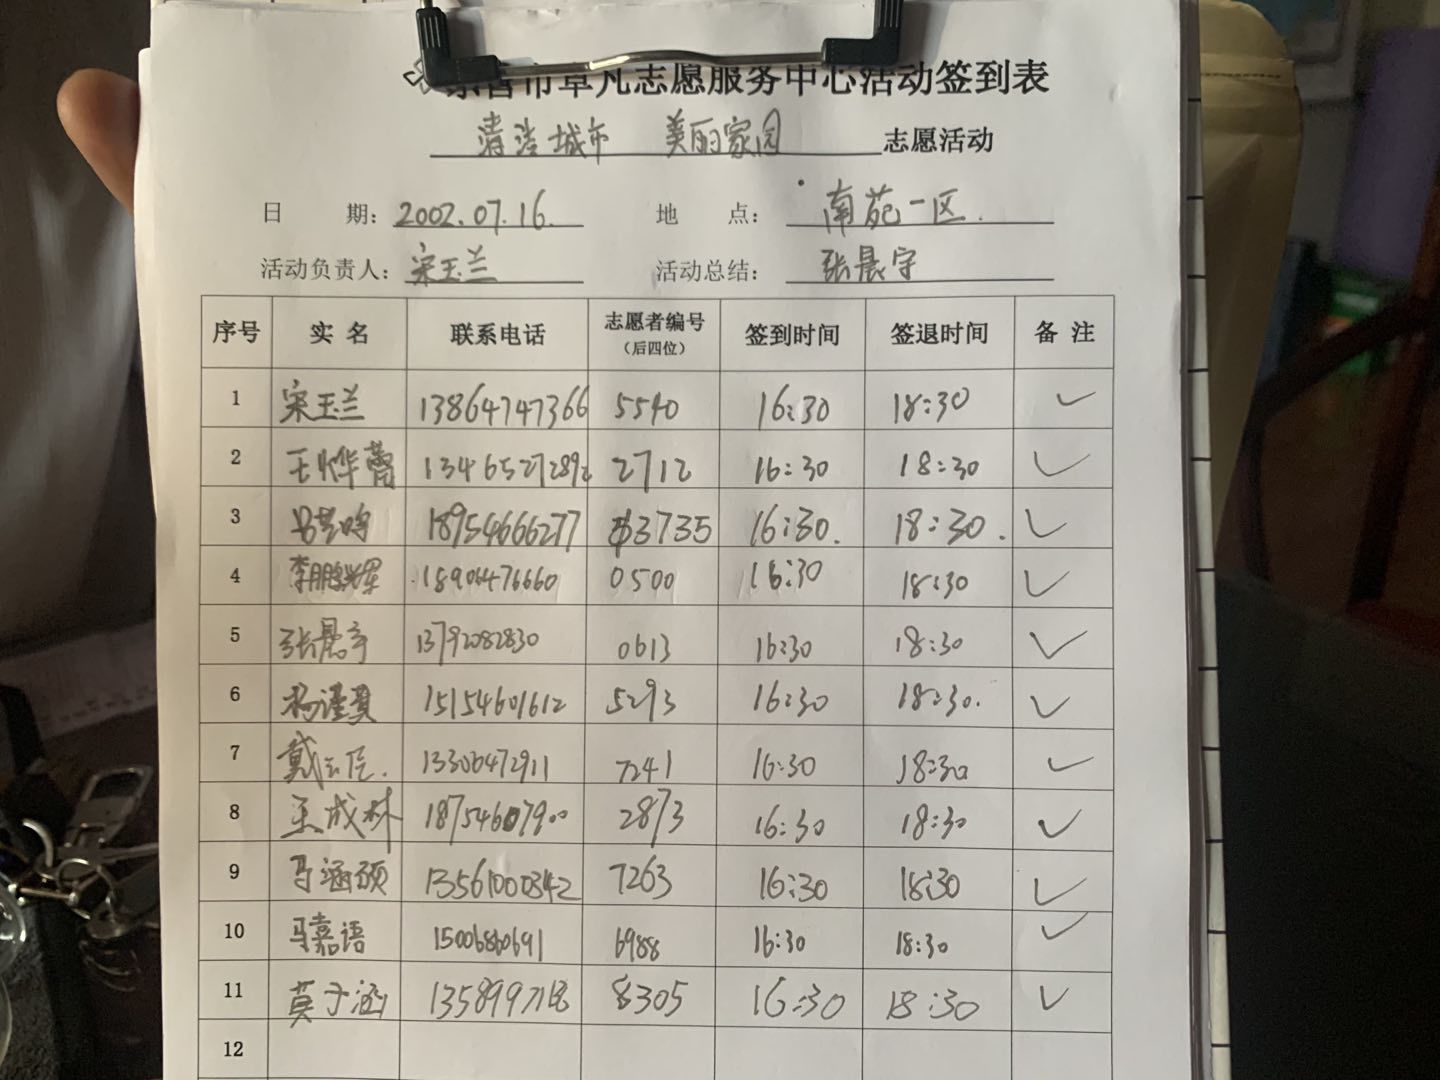 营市草凡志愿服务中心活动签到表
清洁城市 美丽家园 志愿活动
日 期: 2002.07.16. 地 点: 南苑一区.
活动负责人: 宋玉兰 活动总结: 张晨宇
序号 实 名 联系电话 志愿者编号 (后四位) 签到时间 签退时间 备 注
1 宋玉兰 13864747366 5540 16:30 18:30 ✓
2 王烨蕾 13465272892 2712 16:30 18:30 ✓
3 18954666277 3735 16:30. 18:30. ✓
4 李鹏辉 18906476660 0500 16:30 18:30 ✓
5 张晨宇 13792082830 0613 16:30 18:30 ✓
6 杨谨夏 15154601612 5293 16:30 18:30. ✓
7 戴 13306472911 7241 16:30 18:30 ✓
8 王成林 18754607900 2873 16:30 18:30 ✓
9 马涵硕 13561000342 7263 16:30 18:30 ✓
10 马嘉语 15006860691 6988 16:30 18:30 ✓
11 莫子涵 8305 16:30 18:30 ✓
12